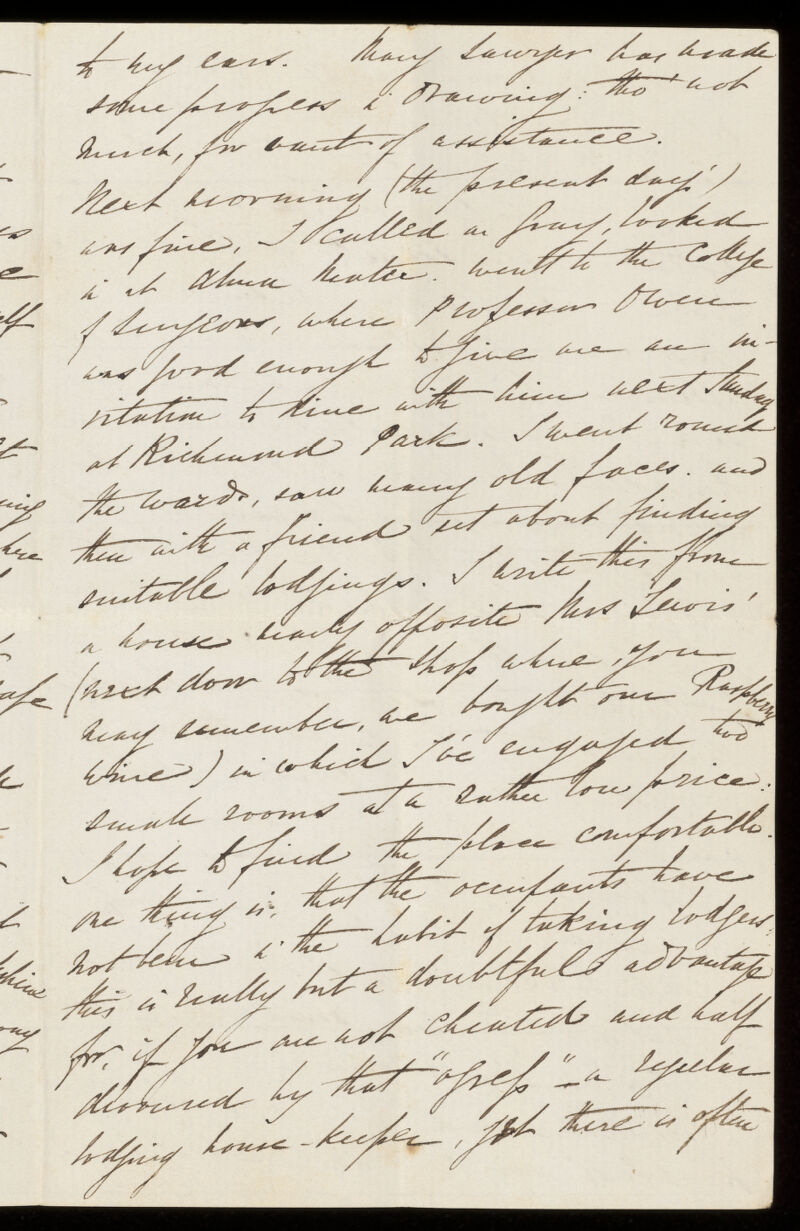 to my ears. Mary Sawyer has made
some progress in drawing: tho' not
much, for want of assistance.
Next morning (the present day!)
was fine, I called on Gray, looked
in at Alma Mater. went to the College
of Surgeons, where Professor Owen
was good enough to give me an in-
vitation to dine with him next Sunday
at Richmond Park. I went round
the wards, saw many old faces. and
then with a friend set about finding
suitable lodgings. I write this from
a house nearly opposite Mrs Lewis'
(next door to the shop where, you
may remember, we bought our Raspberry
wine) in which I've engaged two
small rooms at a rather low price:
I hope to find the place comfortable.
one thing is, that the occupants have
not been in the habit of taking lodgers,
this is really but a doubtful advantage
for, if you are not cheated and half
devoured by that "ogress" – a regular
lodging house-keeper, yet there is often
self
ing
here
safe